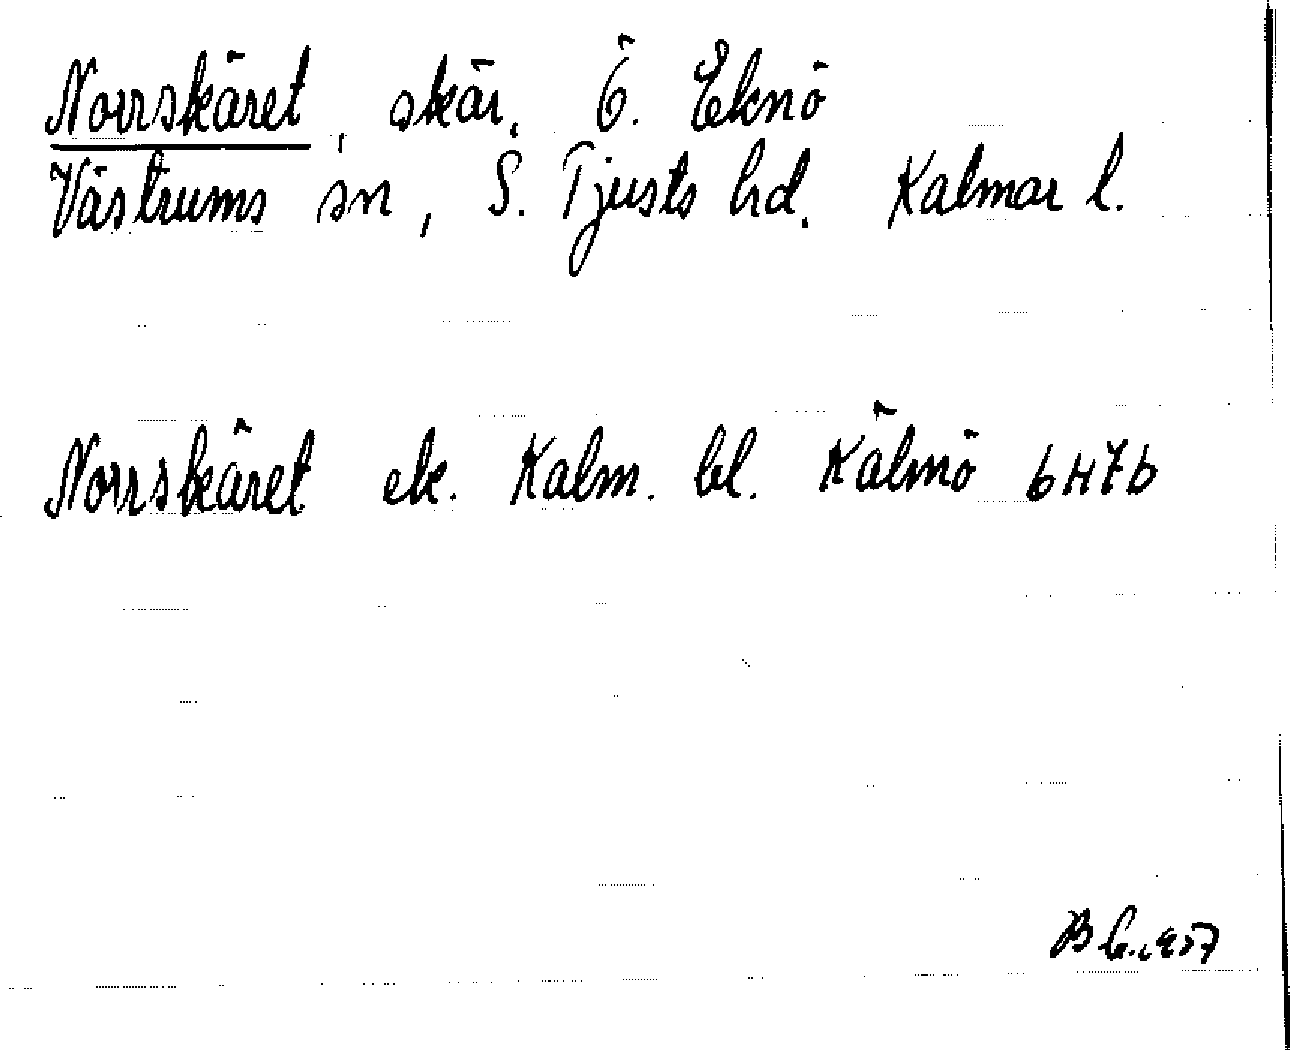 Norrskäret, skär, Ö. Eknö
Västrums sn, S. Tjusts hd. Kalmar l.
Norrskäret ek. Kalm. bl. Kälmö 6H7b